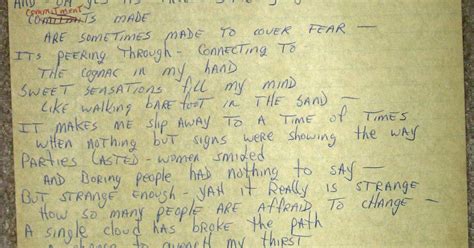 COMMITMENT
MADE
ARE SOMETIMES MADE TO COVER FEAR —
ITS PEERING THROUGH - CONNECTING TO
THE COGNAC IN MY HAND
SWEET SENSATIONS FILL MY MIND
LIKE WALKING BAREFOOT IN THE SAND —
IT MAKES ME SLIP AWAY TO A TIME OF TIMES
WHEN NOTHING BUT SIGNS WERE SHOWING THE WAY
PARTIES LASTED - WOMEN SMILED
AND BORING PEOPLE HAD NOTHING TO SAY —
BUT STRANGE ENOUGH - YAH IT REALLY IS STRANGE
HOW SO MANY PEOPLE ARE AFFRAID TO CHANGE —
A SINGLE CLOUD HAS BROKE THE PATH
TO QUENCH MY THIRST